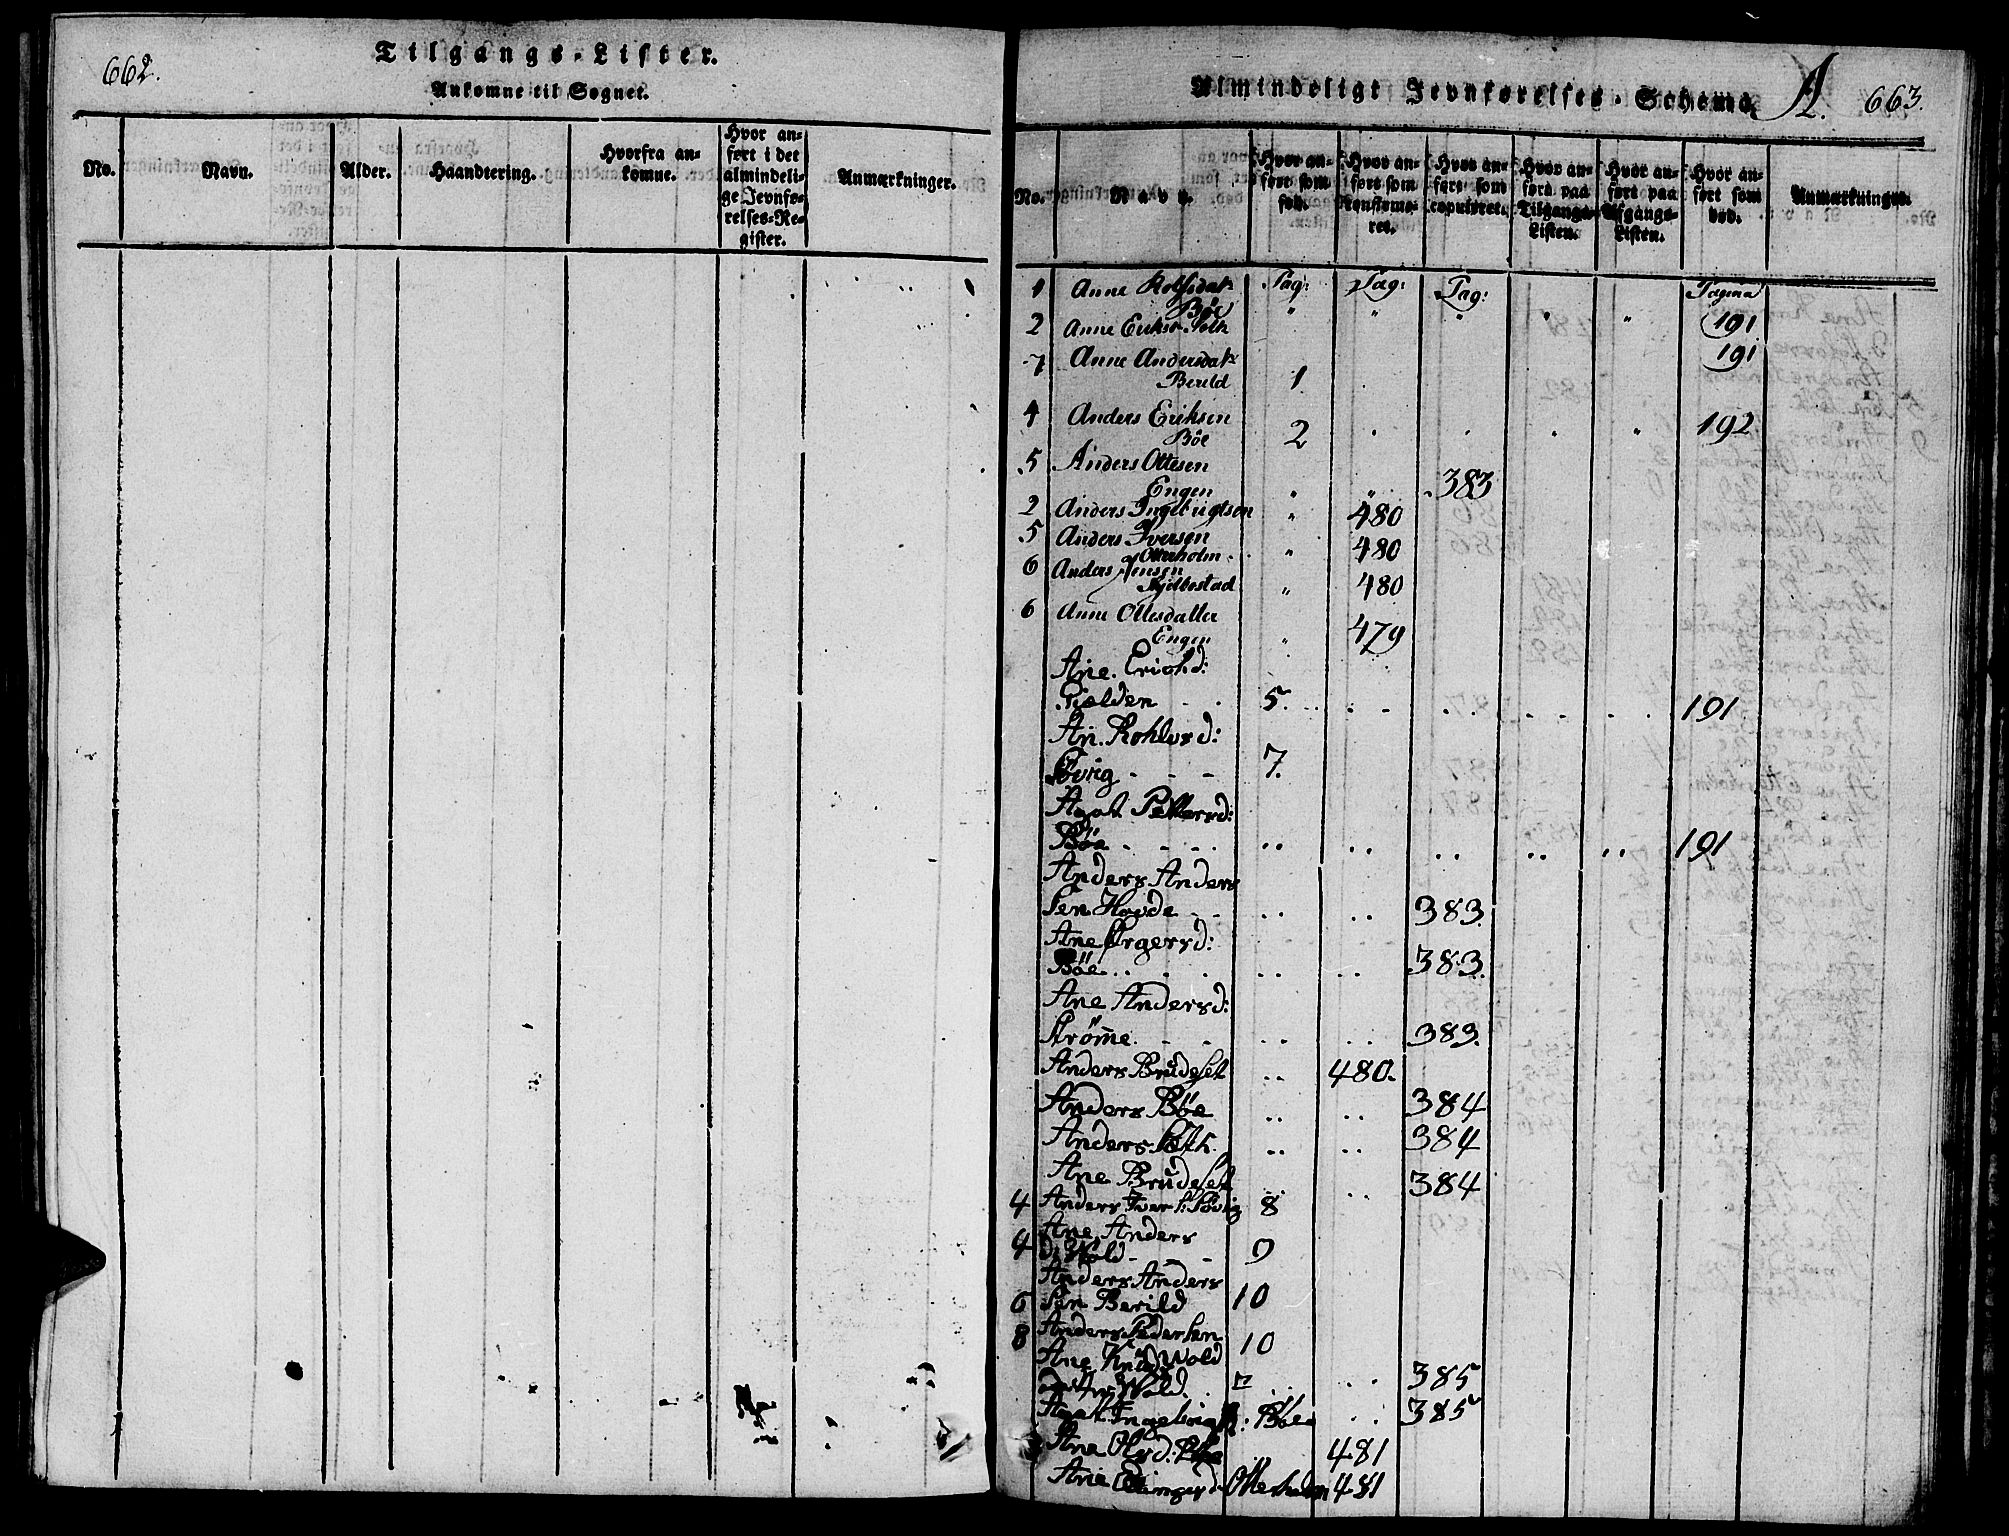 662.
Tilgangs-Lister.
Ankomne til Sognet.
No.
Navn.
Alder.
Haandtering.
Hvorfra an-
komne.
Hvor an-
ført i det
almindeli-
ge Jevnfø-
relses-Re-
gister.
Anmærkninger.
Almindeligt Jevnførelses-Schema A. 663.
No.
Navn.
Hvor an-
ført som
fød.
Hvor an-
ført som
Konfirme-
ret.
Hvor an-
ført som
copuleret.
Hvor an-
ført paa
Tilgangs-
Listen.
Hvor an-
ført paa
Afgangs-
Listen.
Hvor an-
ført som
død.
Anmærkninger.
1 Anne Rolfsdatr Pag: Pag: Pag: Pagina
Böe " " " " " 191
2 Anne Eriksd. 191
7 Anne Andersdatr
Berild 1
4 Anders Eriksen
Böe 2 . . . " 192
5 Anders Ottesen
Engen " " 383
2 Anders Ingebrigtsen " 480
5 Anders Iversen
Otterholm " 480
6 Anders Jensen
Hjelbostad " 480
6 Anne Ottesdatter
Engen " 479
Ane. Erichd:
Fielden 5. 191
An. Rohlvsd:
Søvig - - - 7.
Agat Pettersd:
Böe - - - 191
Anders Anders
sen Hovde - - 383.
Ane Asgersd:
Böe . . . 383.
Ane Andersd:
Strøm̄e. - - 383.
Anders Brudeset 480.
Anders Böe 384
Anders Solh. 384
Ane Brudeset 384
4 Anders Ivers. Søvig 8
4 Ane Anders
d: Wold - - - 9
Anders Anders
6 sen Berild 10
8 Anders Pedersen 10
Ane Knuds Wold
Wold. 385
Agat. Ingebrigt: Böe 385
Ane Olsd. 481
Ane Ellingsd Otterholm 481